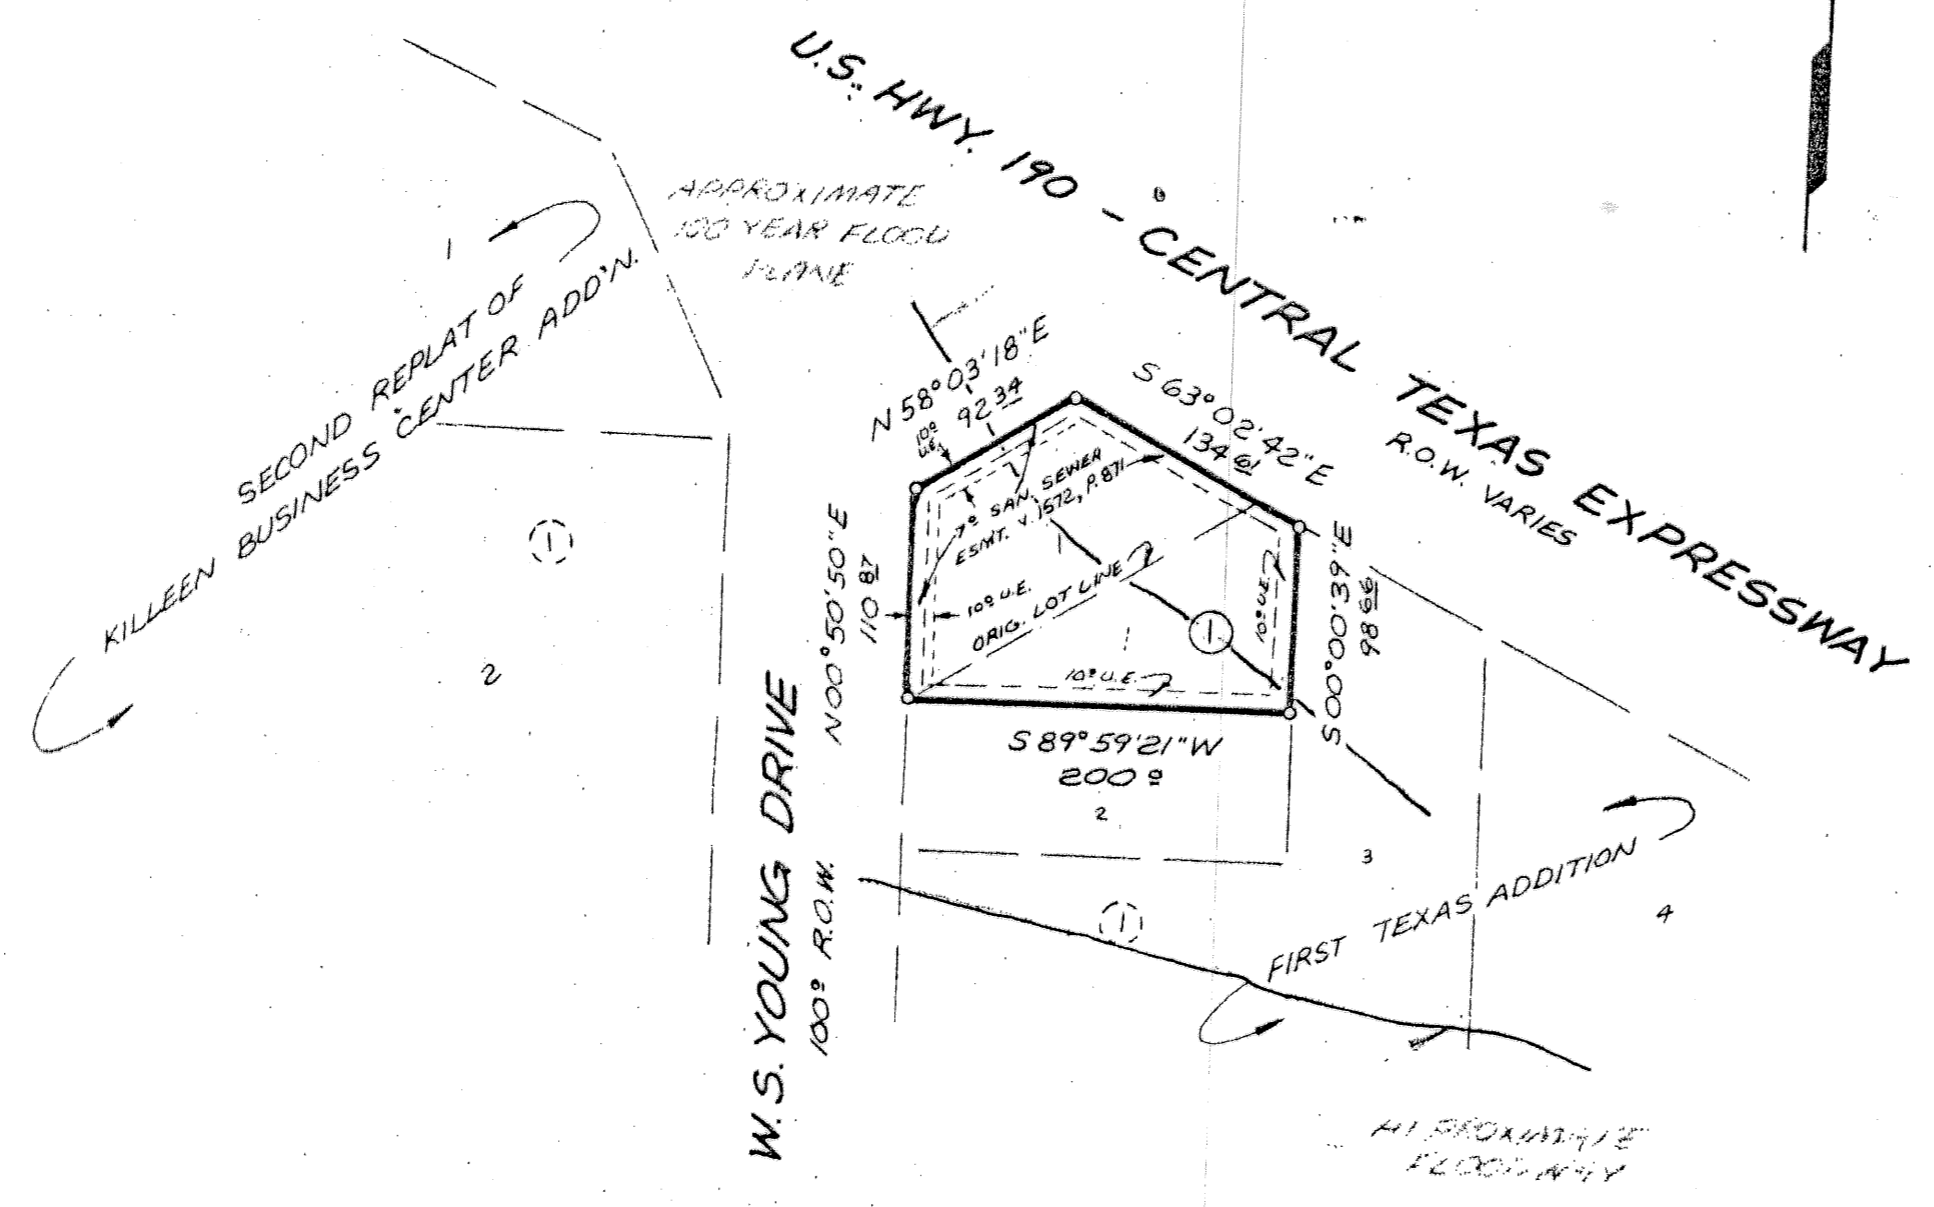 U.S. HWY. 190 - CENTRAL TEXAS EXPRESSWAY
R.O.W. VARIES
APPROXIMATE
100 YEAR FLOOD
PLANE
1
SECOND REPLAT OF
KILLEEN BUSINESS CENTER ADD'N.
1
2
N 58° 03' 18" E
92 34
10 0
U.E.
S 63° 02' 42" E
134 61
7 0 SAN. SEWER
ESMT. V. 1572, P. 871
1
10 0 U.E.
ORIG. LOT LINE
1
1
10 0 U.E.
10 0 U.E.
N 00° 50' 50" E
110 87
S 00° 00' 39" E
98 66
S 89° 59' 21" W
200 0
2
3
4
1
W.S. YOUNG DRIVE
100 0 R.O.W.
FIRST TEXAS ADDITION
APPROXIMATE
FLOODWAY